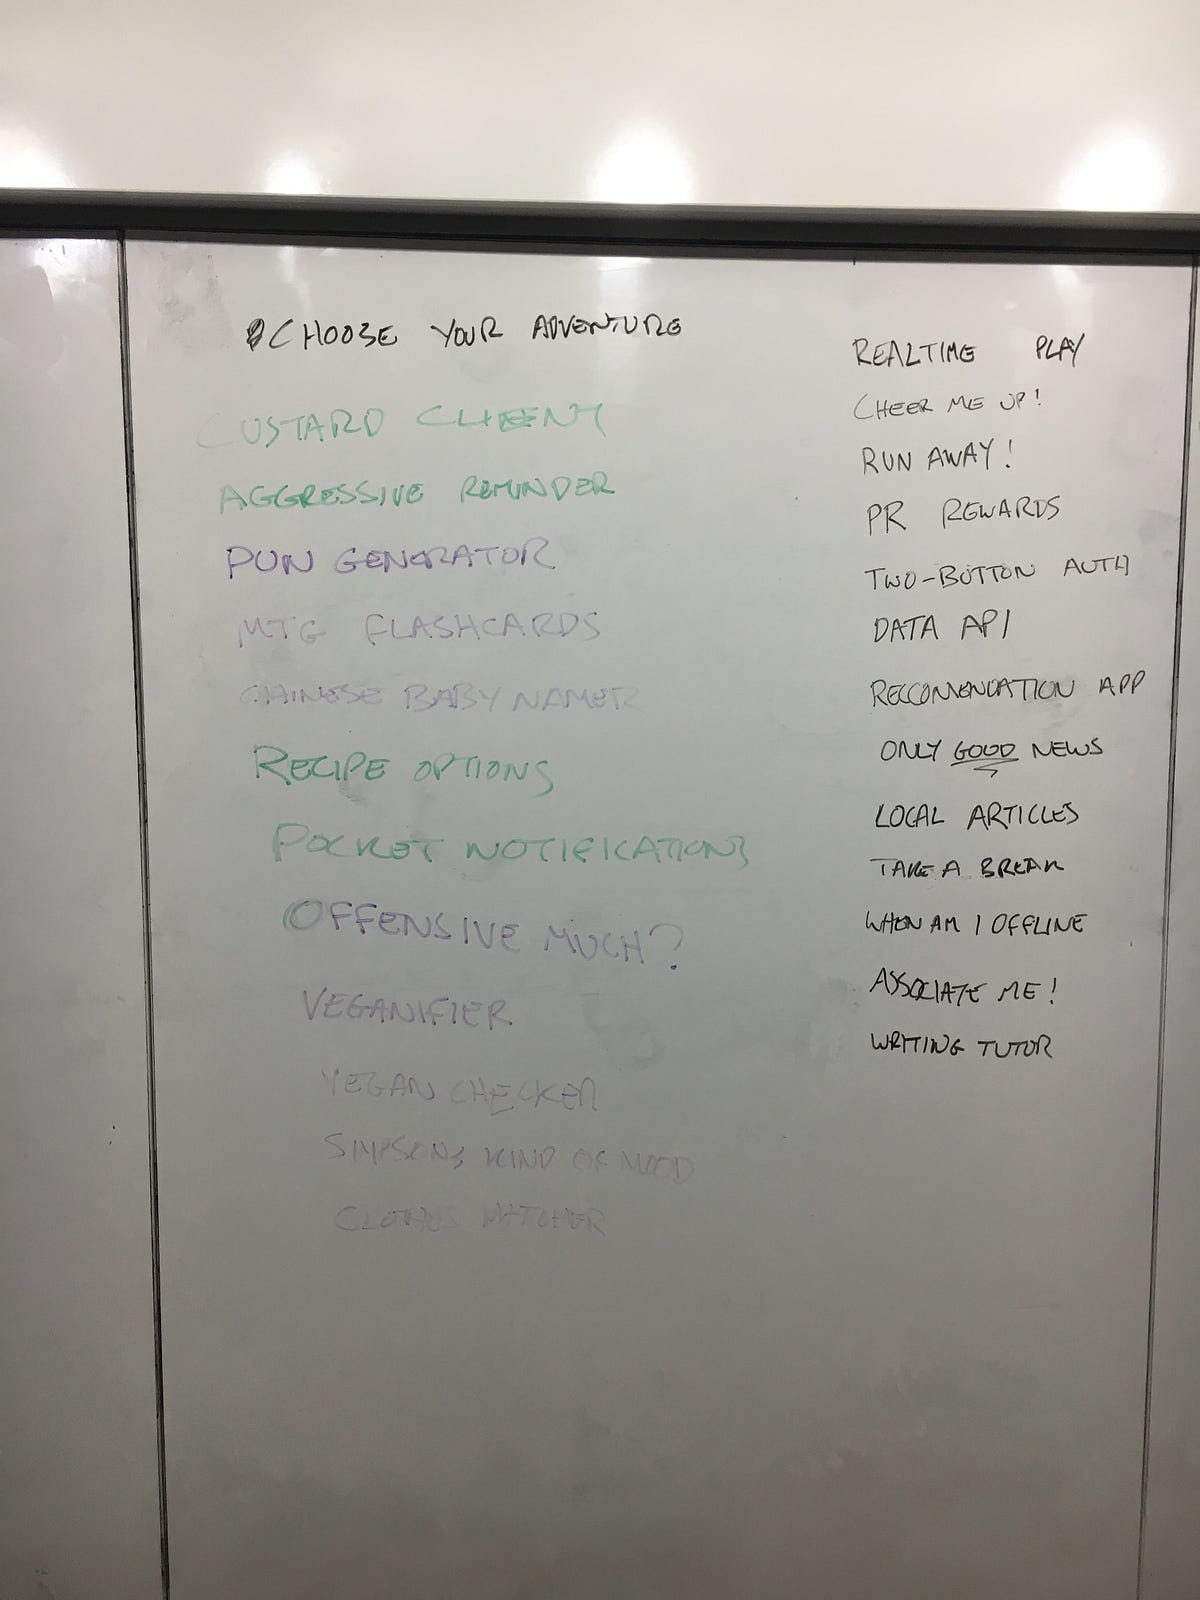 CHOOSE YOUR ADVENTURE
CUSTARD CLIENT
AGGRESSIVE REMINDER
PUN GENERATOR
MTG FLASHCARDS
CHINESE BABY NAMER
RECIPE OPTIONS
POCKET NOTIFICATIONS
OFFENSIVE MUCH?
VEGANIFIER
VEGAN CHECKER
SIMPSONS KIND OF MOOD
CLOTHES MATCHER
REALTIME PLAY
CHEER ME UP!
RUN AWAY!
PR REWARDS
TWO-BUTTON AUTH
DATA API
RECCOMENDATION APP
ONLY GOOD NEWS
LOCAL ARTICLES
TAKE A BREAK
WHEN AM I OFFLINE
ASSOCIATE ME!
WRITING TUTOR